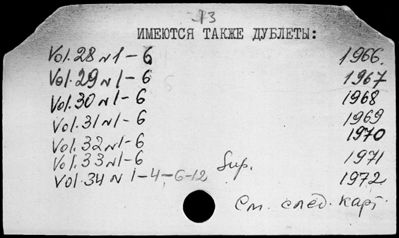 13
ИМЕЮТСЯ ТАКЖЕ ДУБЛЕТЫ:
Vol. 28 N 1 - 6 1966.
Vol. 29 N 1 - 6 1967
Vol. 30 N 1 - 6 1968
Vol. 31 N 1 - 6 1969
Vol. 32 N 1 - 6 1970
Vol. 33 N 1 - 6 Sup. 1971
Vol. 34 N 1 - 4 - 6 - 12 1972
См. след. карт.